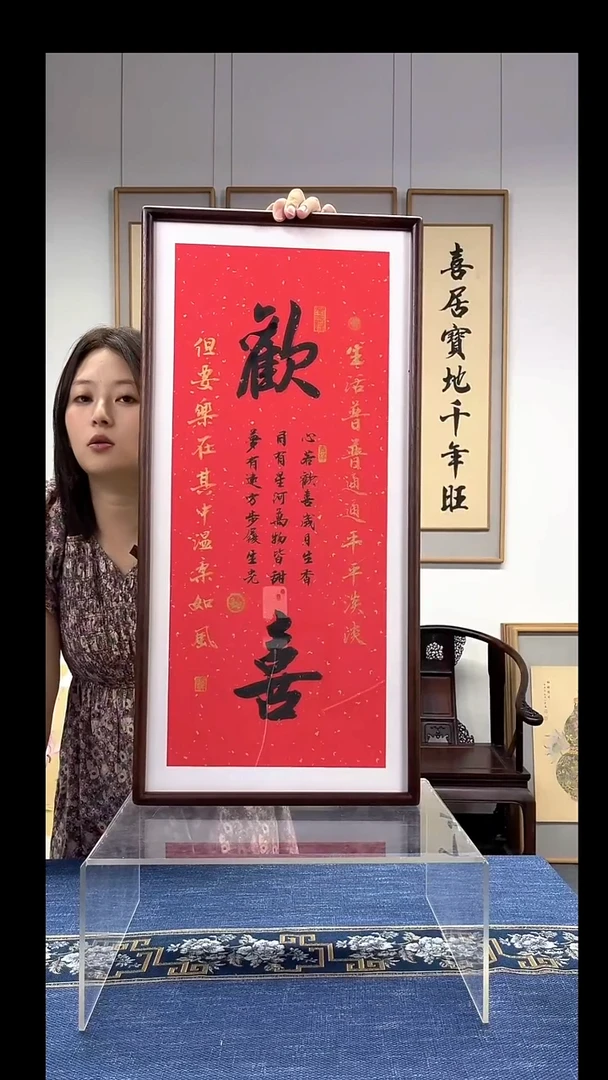 喜居寶地千年旺
生活普普通通平平淡淡
歡喜
心若歡喜歲月生香
目有星河萬物皆甜
夢有遠方步履生光
但要樂在其中溫柔如風